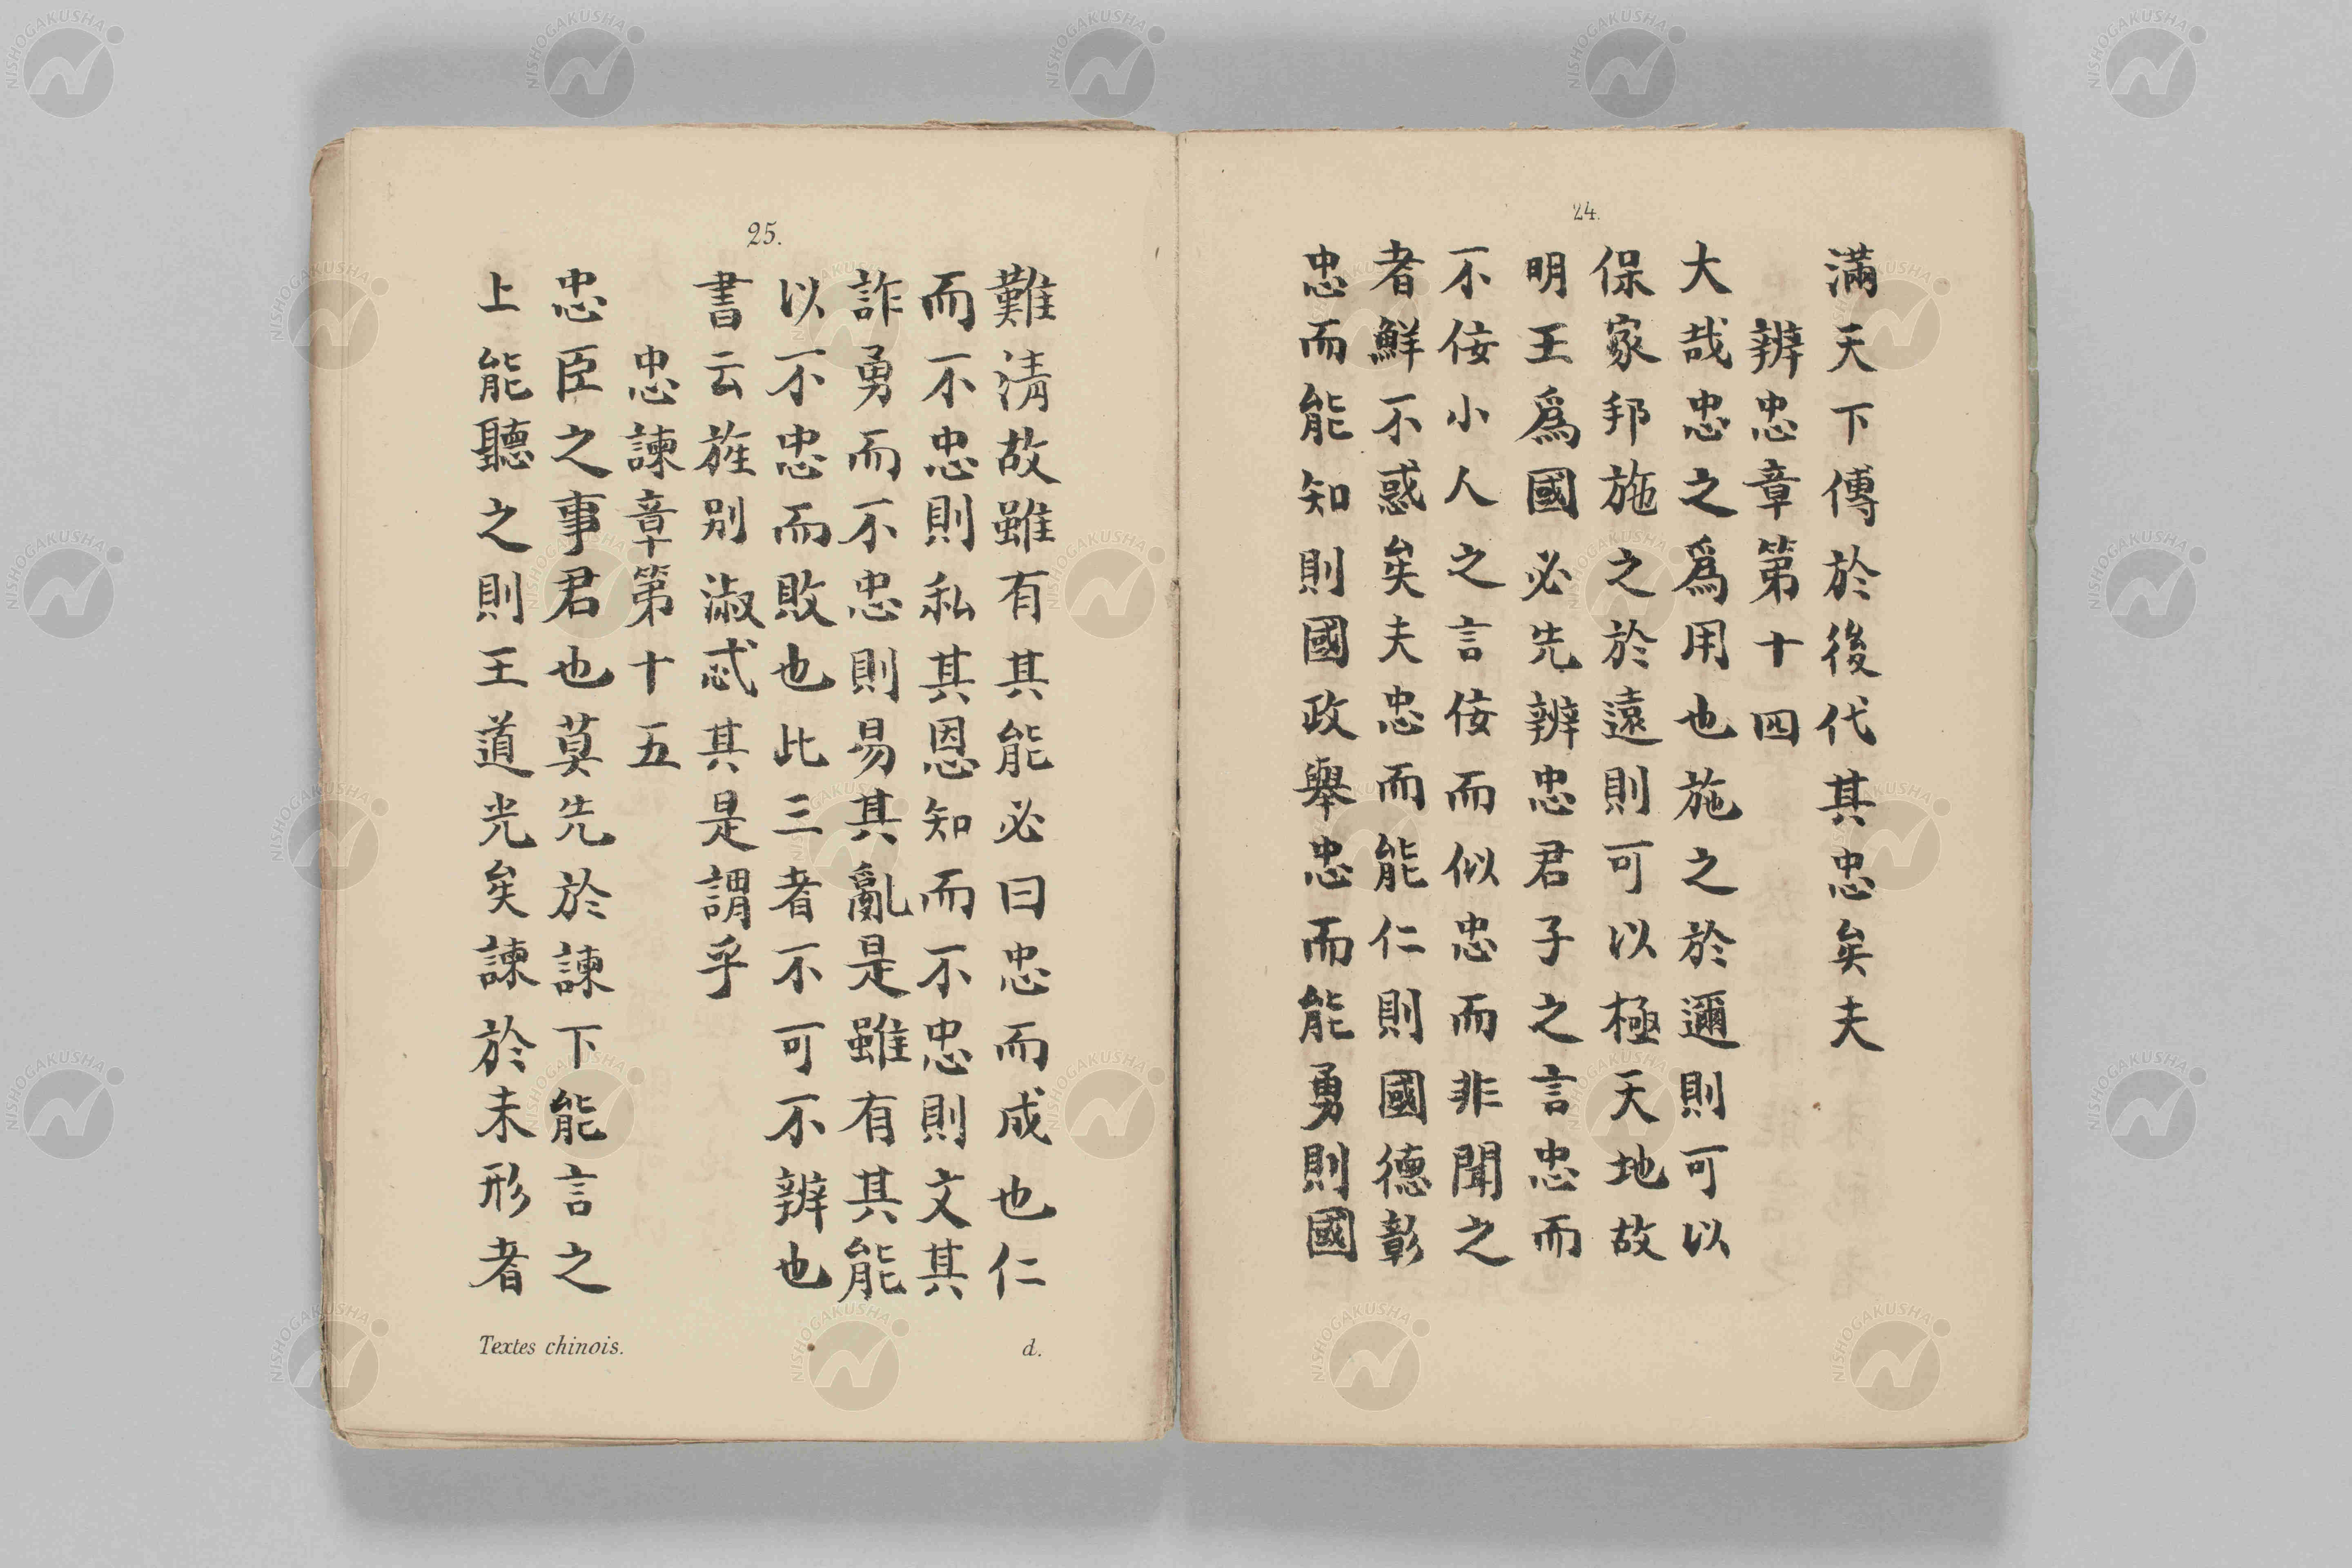 24.
滿天下傳於後代其忠矣夫
辨忠章第十四
大哉忠之爲用也施之於邇則可以
保家邦施之於遠則可以極天地故
明王爲國必先辨忠君子之言忠而
不佞小人之言佞而似忠而非聞之
者鮮不惑矣夫忠而能仁則國德彰
忠而能知則國政舉忠而能勇則國
25.
難淸故雖有其能必曰忠而成也仁
而不忠則私其恩知而不忠則文其
詐勇而不忠則易其亂是雖有其能
以不忠而敗也此三者不可不辨也
書云旌别淑忒其是謂乎
忠諫章第十五
忠臣之事君也莫先於諫下能言之
上能聽之則王道光矣諫於未形者
Textes chinois.
d.
NISHOGAKUSHA